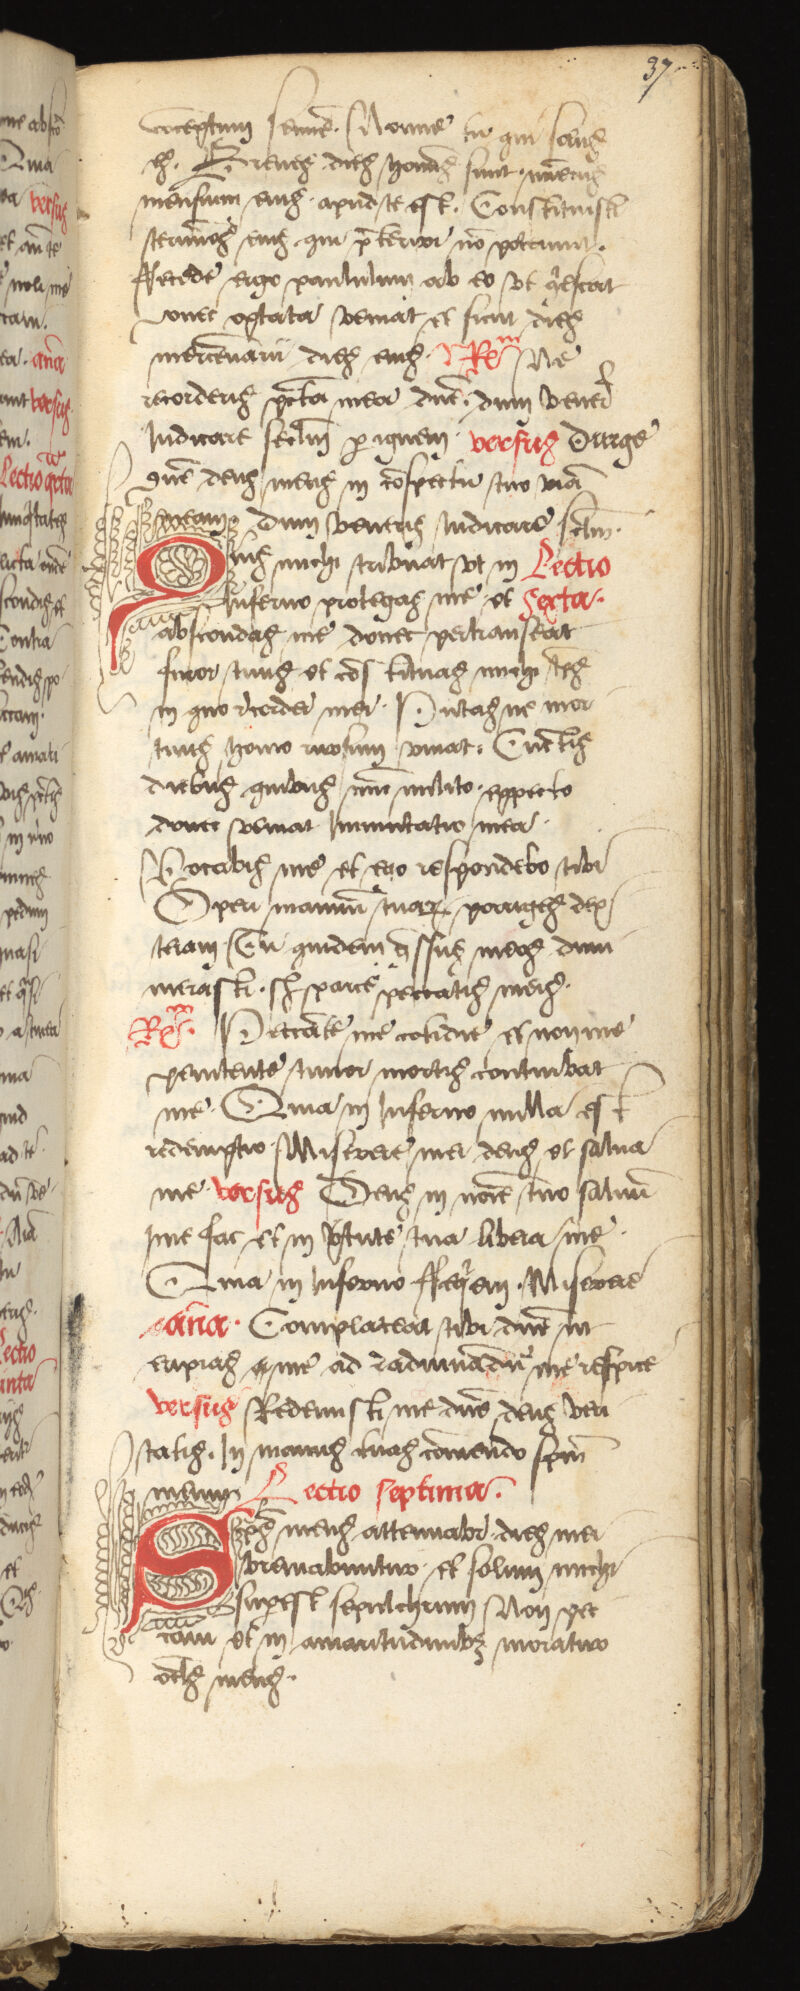 37
conceptum semine. Nonne tu qui solus
es. Breues dies hominis sunt. numerus
mensium eius apud te est. Constituisti
terminos eius qui preteriri non poterunt.
Recede ergo paululum ab eo vt quiescat
donec optata veniat et sicut dies
mercenarii dies eius. Rm Ne
recorderis peccata mea dne. dum veneris
Iudicare seclm per ignem. versus Dirige
dne deus meus in conspectu tuo viam
meam. Dum veneris Iudicare seclm.
Quis michi tribuat vt in Lectio
Inferno protegas me et Sexta.
abscondas me donec pertranseat
furor tuus et constituas michi tps
in quo recorderis mei. Putas ne mor
tuus homo rursum viuat. Cunctis
diebus quibus nunc milito. expecto
donec veniat Immutatio mea.
Vocabis me et ego respondebo tibi
Operi manuum tuarum porriges dex
teram. Tu quidem gressus meos dinu
merasti. sed parce peccatis meis.
Rm. Peccante me cotidie et non me
penitente timor mortis conturbat
me. Quia in Inferno nulla est
redemptio. Miserere mei deus et salua
me. versus Deus in noie tuo saluum
me fac et in virtute tua libera me.
Quia in Inferno Requiem. Miserere
ana. Complaceat tibi dne vt
eripias me ad adiuuandum me respice
versus Redemisti me dne deus veri
tatis. In manus tuas comendo spm
meum Lectio septima.
Sps meus attenuabitur dies mei
breuiabuntur. et solum michi
superest sepulchrum Non pec
caui et in amaritudinibus moratur
oculus meus.